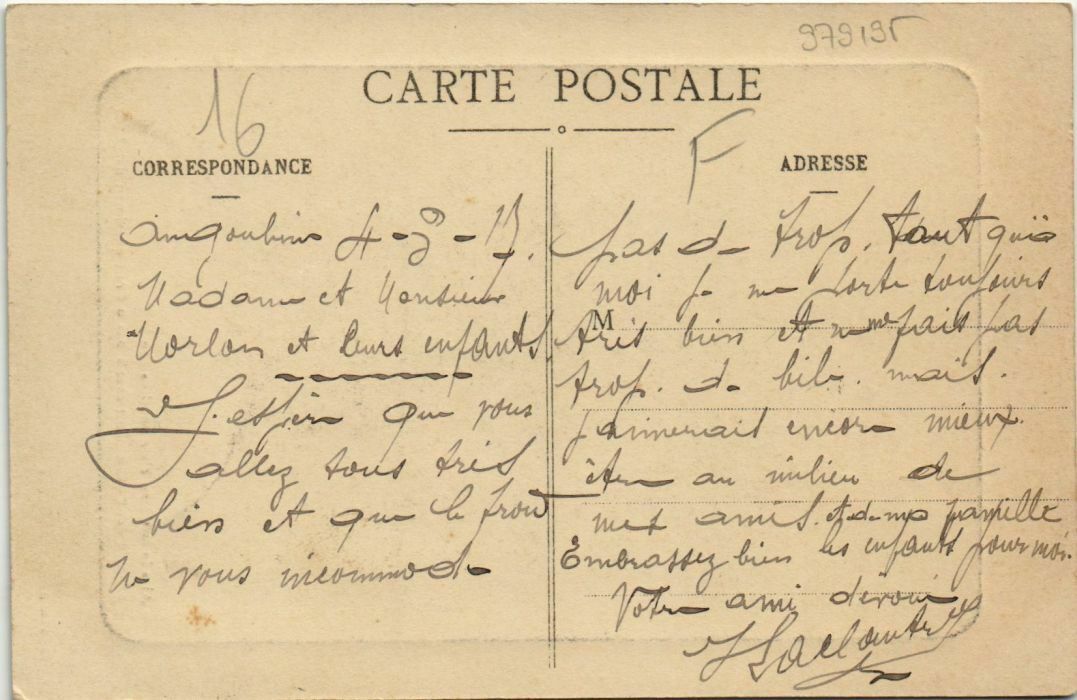 979195
CARTE POSTALE
16
F
CORRESPONDANCE
ADRESSE
Angoulême 4-
Madame et Monsieur
Morlon et leurs enfants
J'espère que vous
allez tous très
bien et que le froid
ne vous incommode
pas de trop. Tant qu'à
moi je me porte toujours
M
très bien et ne me fais pas
trop. de bile. mais.
j'aimerais encore mieux.
être au milieu de
mes amis. et de ma famille
Embrassez bien les enfants pour moi.
Votre ami dévoué